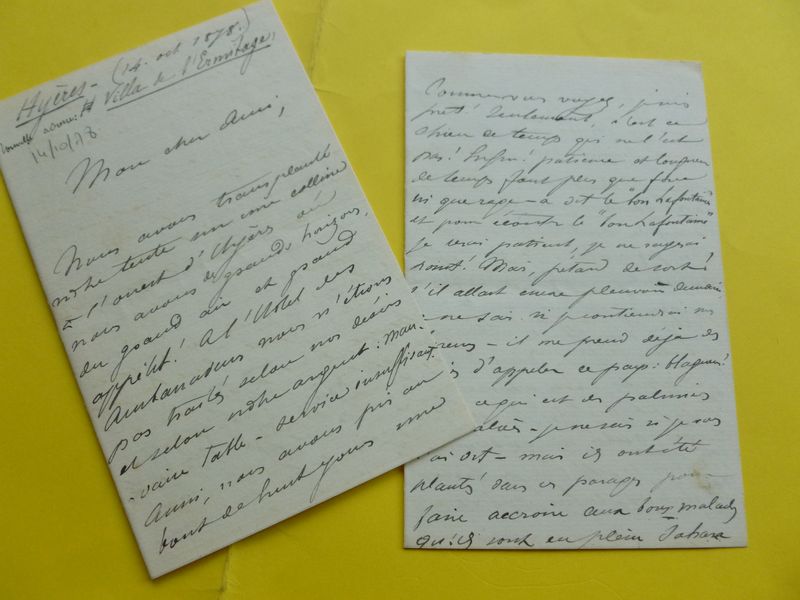 Hyères - (14. oct 1878.)
Nouvelle adresse: Villa de l'Ermitage,
14/10/78
Mon cher Ami,
Nous avons transplanté
notre tente sur une colline
à l'ouest d'Hyères où
nous avons de grands horizons,
du grand air et grand
appétit! A l'Hôtel des
Ambassadeurs nous n'étions
pas traités selon nos désirs
et selon notre argent: mau-
vaise table - service insuffisant.
Aussi, nous avons pris au
bout de huit jours une
vous voyez, je suis
prêt! Seulement, c'est ce
de temps qui ne l'est
pas! Enfin! patience et longueur
de temps font plus que force
ni que rage - a dit le "bon Lafontaine"
et pour écouter le "bon Lafontaine"
je serai patient, je ne ragerai
point! Mais, pétard de sort!
s'il allait encore pleuvoir demain,
ne sais si je contiendrai ma
- il me prend déjà des
d'appeler ce pays: blagueur!
ce qui est des palmiers
- je ne sais si je vous
ai dit - mais ils ont été
plantés dans ces parages pour
faire accroire aux bons malades
qu'ils sont en plein Sahara